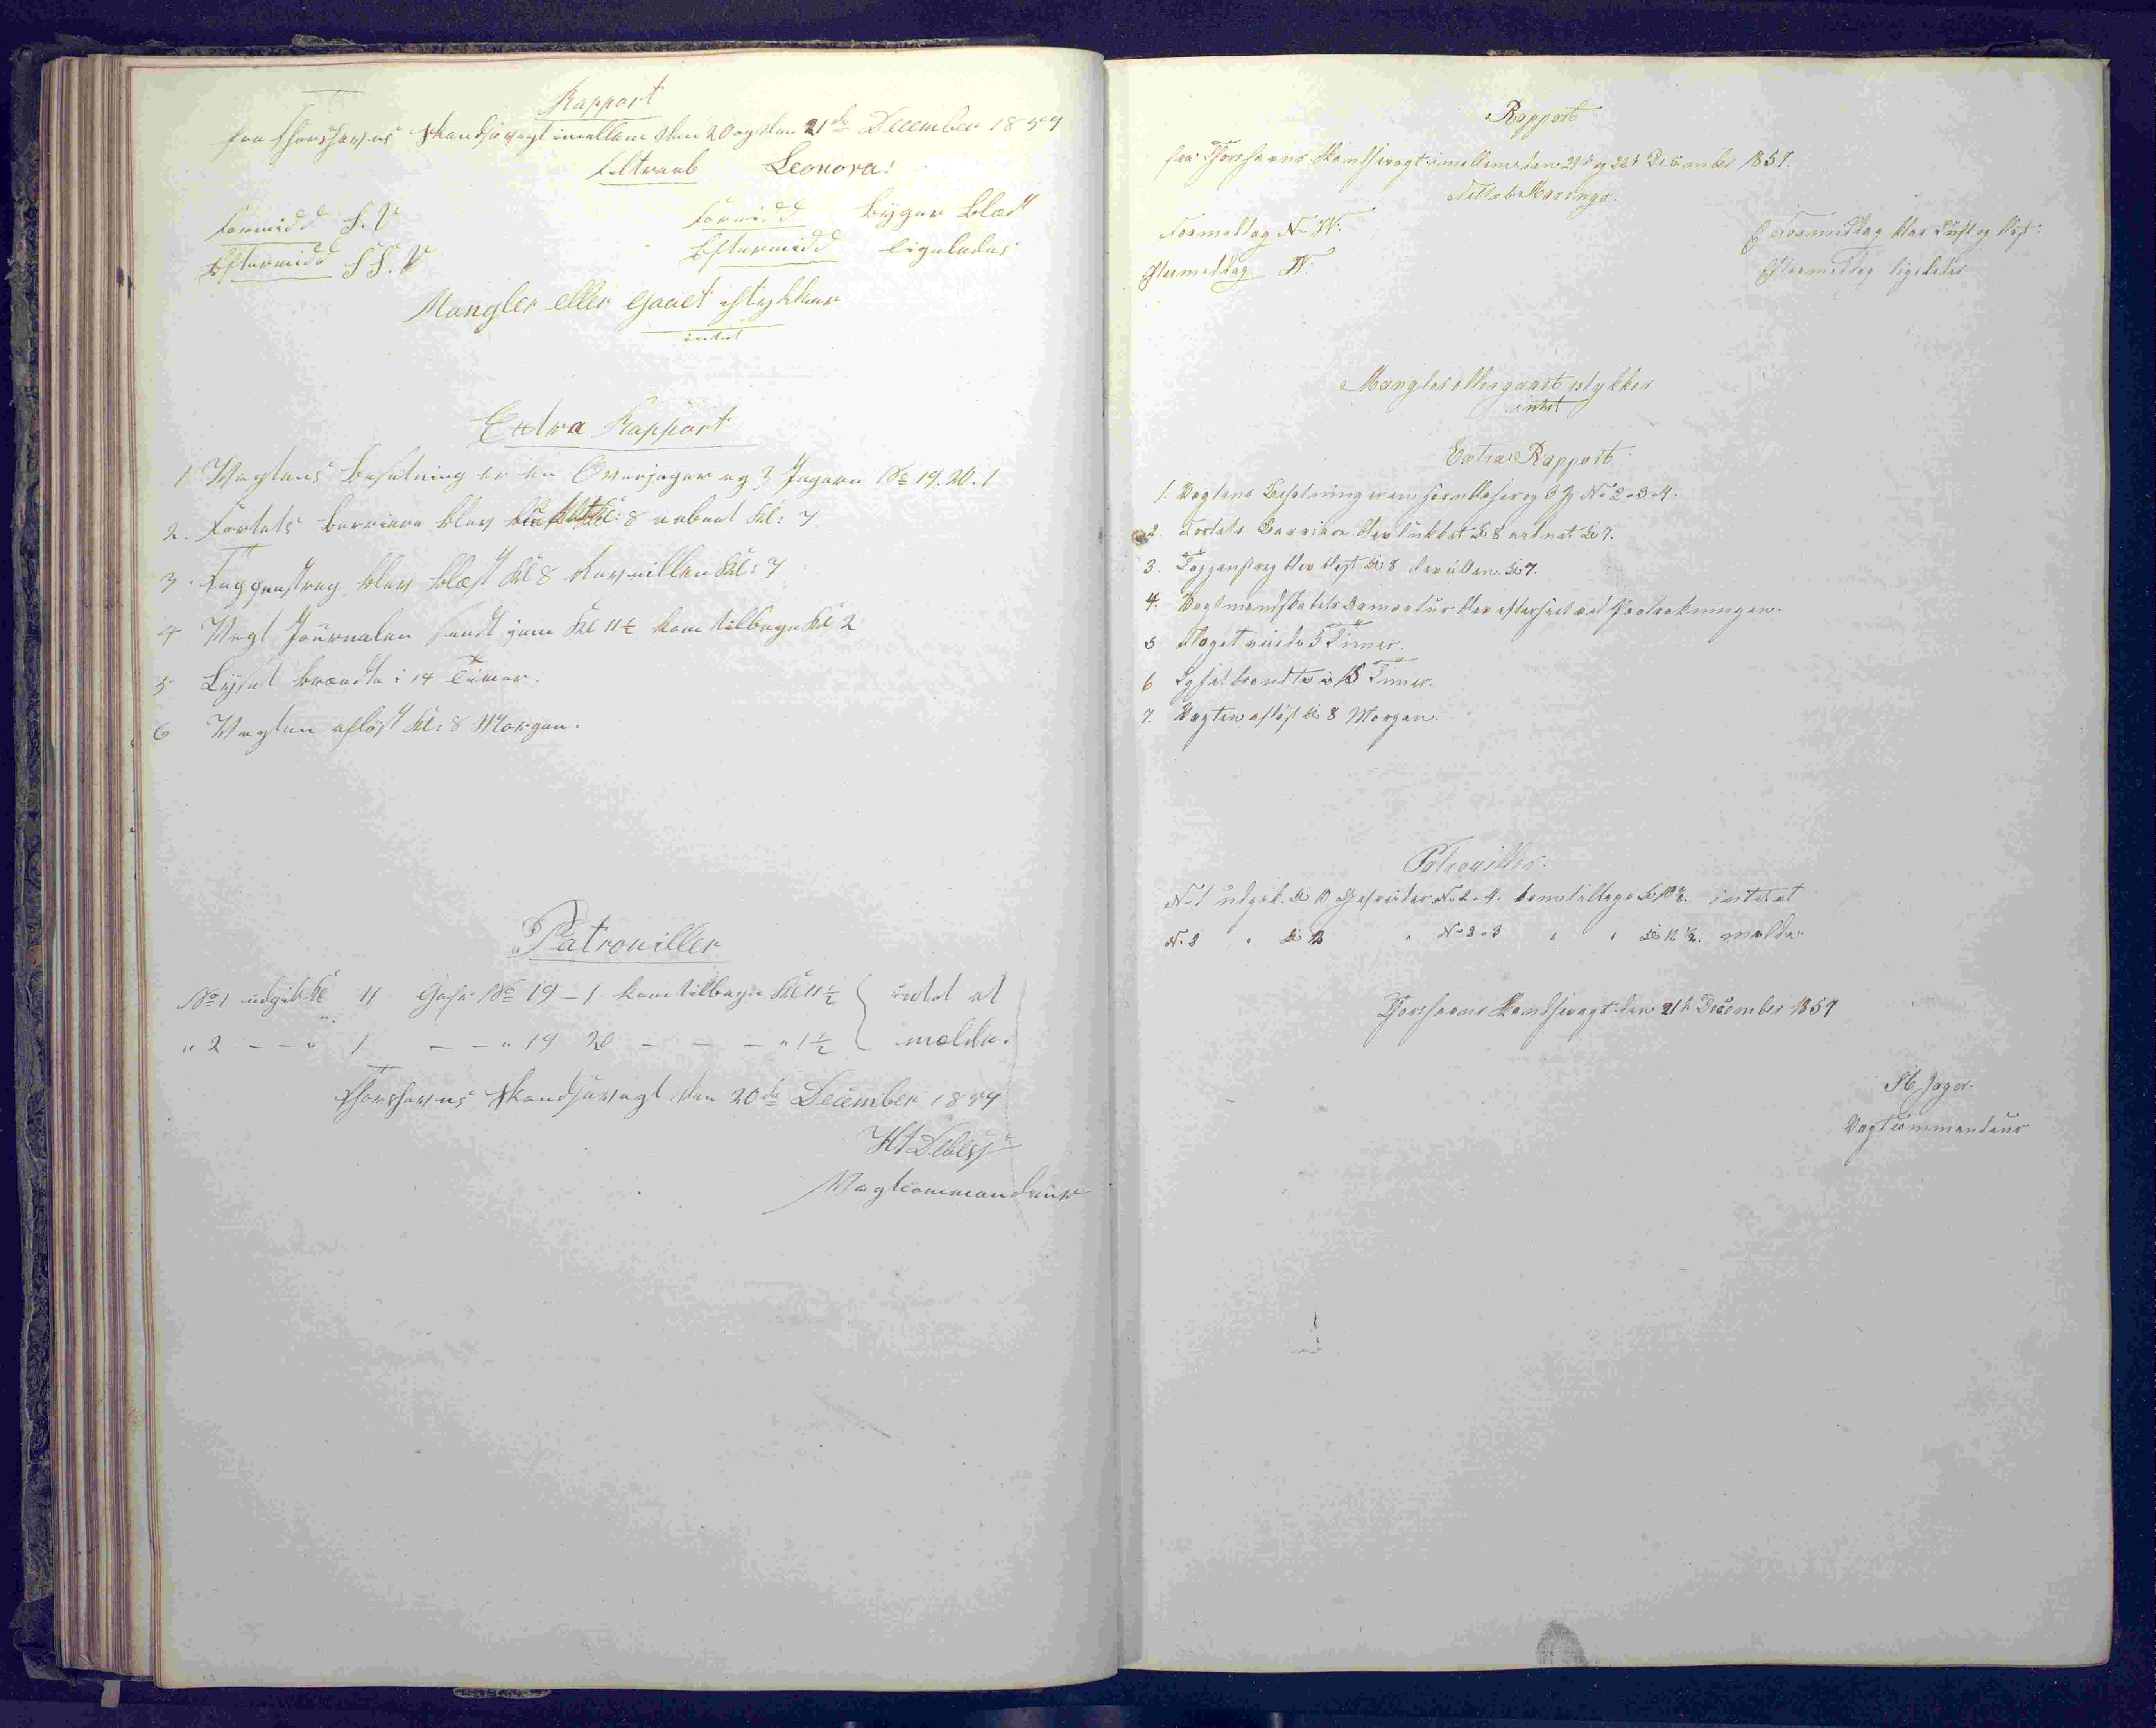 Rapport
fra Thorshavns Skandsevagt imellem den 20 og den 21de December 1859
Feltraab Leonora!
Formidd S.V Formidd Byger Blæst
Eftermidd SS.V Eftermidd ligeledes
Mangler eller Gaaet istykker
intet
Extra Rapport
1 Vagtens Besætning er en Overjæger og 3 Jægere No 19. 20. 1
2. Fortets Barriere blev Kl: 8 aabnet Kl: 7
3. Tappenstreg blev blæst Kl 8 Revellien Kl: 7
4 Vagt Journalen sendt hjem Kl 11½ kom tilbage Kl 2
5 Lyset brændte i 14 Timer.
6 Vagten afløst Kl: 8 Morgen.
Patrouiller
No 1 udgik Kl 11 Gefr: No 19 - 1 kom tilbage Kl 11½ intet at
" 2 - - " 1 - - " 19 20 - - - " 1½ melde.
Thorshavns Skandsevagt den 20de December 1859
Debess
Vagtcommandeur
Rapport
fra Thorshavns Skandsevagt imellem den 21de og 22de December 1859.
Feltraab Marengo.
Formeddag N. W. Formiddag klar Luft og
Eftermeddag N: Eftermeddag ligeledes
Mangler eller gaaet istykker
intet
Extra Rapport
1. Vagtens Besætning er en og 3 J No 2 - 3 - 4.
2. Fortets Barriere blev lukket Kl 8 aabnet Kl 7.
3. Tappenstreg blev blæst Kl 8 Revellien Kl 7.
4. Vagtmandskabets Armatur blev efterseet ved
5 5 Timer.
6 Lyset brændte i 15 Timer.
7. Vagten afløst Kl 8 Morgen.
Patrouiller.
No 1 udgik Kl 10 Gefreider No 2 - 4. kom tilbage Kl 10½. intet at
No. 2 " Kl 12 " No 2 - 3 " " Kl 12½. melde
Thorshavns Skandsevagt den 21de December 1859
Jager.
Vagtcommandeur